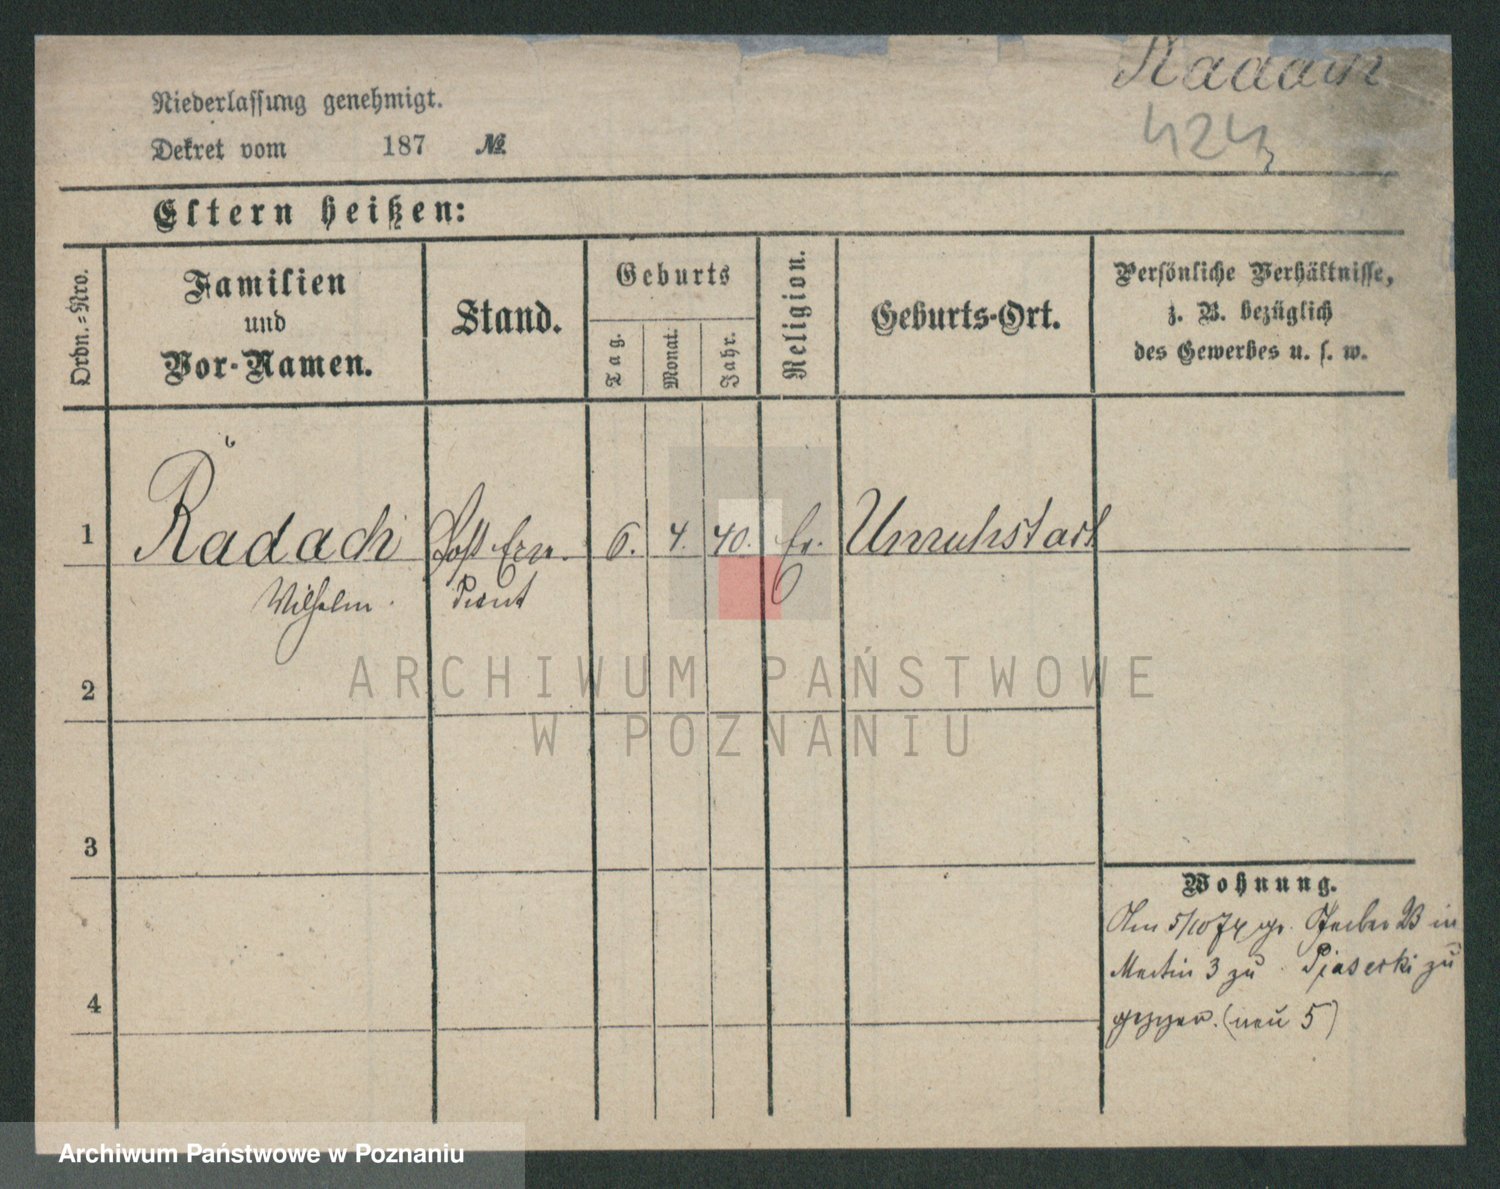 Radach
424
Niederlassung genehmigt.
Dekret vom 187 №
Eltern heißen:
Ordn.-Nro.
Familien
und
Vor-Namen.
Stand.
Geburts
Tag.
Monat.
Jahr.
Religion.
Geburts-Ort.
Persönliche Verhältnisse,
z. B. bezüglich
des Gewerbes u. s. w.
1 Radach 6. 4. 40. Ev. Unruhstadt
Wilhelm.
2
ARCHIWUM PAŃSTWOWE
W POZNANIU
3
Wohnung.
Am 5/10 74 in
Martin 3 zu Pjaserki zu
gezogen. (neu 5)
4
Archiwum Państwowe w Poznaniu